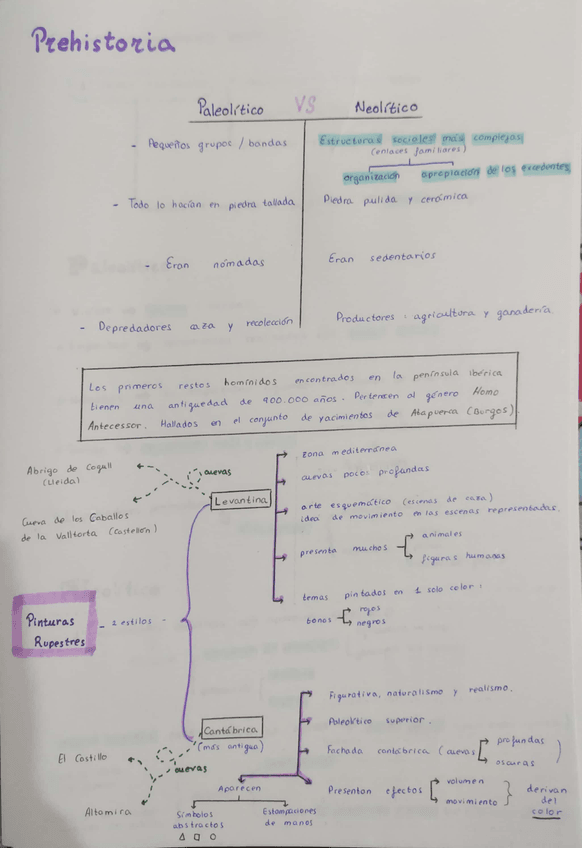 Prehistoria
Paleolítico VS Neolítico
- Pequeños grupos / bandas
Estructuras sociales más complejas
(enlaces familiares)
organización apropiación de los excedentes
- Todo lo hacían en piedra tallada
Piedra pulida y cerámica
- Eran nómadas
Eran sedentarios
- Depredadores caza y recolección
Productores: agricultura y ganadería
Los primeros restos homínidos encontrados en la península ibérica
tienen una antigüedad de 900.000 años. Pertenecen al género Homo
Antecessor. Hallados en el conjunto de yacimientos de Atapuerca (Burgos).
Pinturas
Rupestres
- 2 estilos -
Levantina
cuevas
Abrigo de Cogull
(Lleida)
Cueva de los Caballos
de la Valltorta (Castellón)
zona mediterránea
cuevas poco profundas
arte esquemático (escenas de caza)
idea de movimiento en las escenas representadas.
presenta muchos
animales
figuras humanas
temas pintados en 1 solo color:
tonos
rojos
negros
Cantábrica
(más antigua)
cuevas
El Castillo
Altamira
Figurativa, naturalismo y realismo.
Paleolítico superior.
Fachada cantábrica (cuevas
profundas
oscuras
)
Presentan efectos
volumen
movimiento
derivan
del
color
Aparecen
Símbolos
abstractos
Estampaciones
de manos